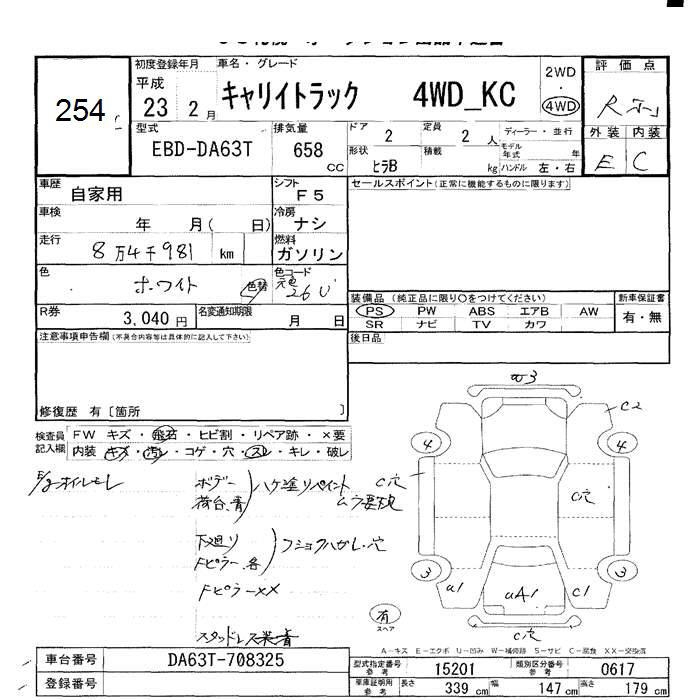 254
初度登録年月
平成
23 2月
車名・グレード
キャリイトラック 4WD_KC
2WD
・
4WD
評価点
R
外装 内装
E C
型式
EBD-DA63T
排気量
658 cc
ドア
2
定員
2 人
ディーラー・並行
形状
ヒラB
積載
kg
モデル年式 年
ハンドル 左・右
車歴
自家用
シフト
F5
セールスポイント(正常に機能するものに限ります)
車検
年 月( 日)
冷房
ナシ
走行
8万4千981 km
燃料
ガソリン
色
ホワイト
色替
色コード
元色
26U
R券
3,040 円
名変通知期限
月 日
装備品(純正品に限り○をつけてください)
PS PW ABS エアB AW
SR ナビ TV カワ
新車保証書
有・無
注意事項申告欄(不具合内容等は具体的に記入して下さい)
後日品
修復歴 有〔箇所 〕
検査員記入欄
FW キズ・飛石・ヒビ割・リペア跡・×要
内装 キズ・汚レ・コゲ・穴・スレ・キレ・破レ
E/gオイルモレ
ボデー
荷台、青
ハケ塗リペイント
ムラ要
下廻り
Fピラー各
フショクハガレ・穴
FピラーXX
スタッドレス装着
a3
C2
4
4
C穴
C穴
3
3
a1
aA1
C1
C穴
有
スペア
A-キズ E-エクボ U-凹み W-補修跡 S-サビ C-腐食 XX-交換済
車台番号
DA63T-708325
登録番号
型式指定番号 参考
15201
類別区分番号 参考
0617
車庫証明用 参考
長さ 339 cm
幅 147 cm
高さ 179 cm